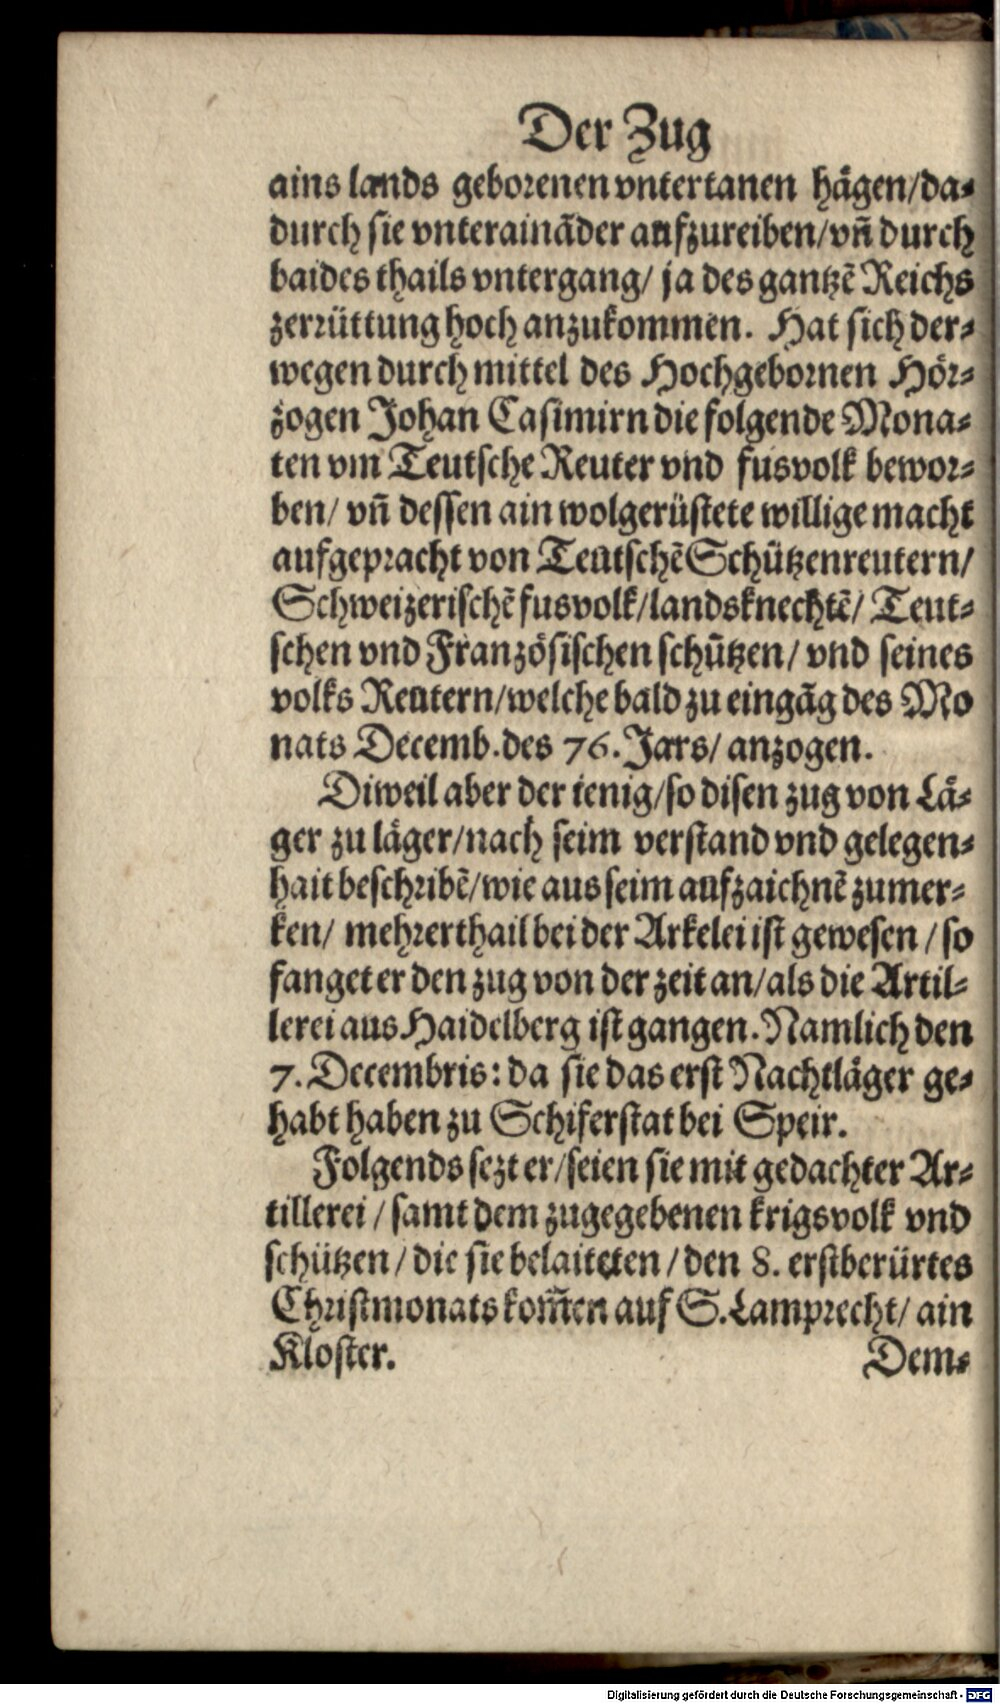 Der Zug
ains lands geborenen vntertanen hägen/da⸗
durch sie vnterainãder aufzureiben/vñ durch
baides thails vntergang/ ja des gantzẽ Reichs
zerrüttung hoch anzukommen. Hat sich der⸗
wegen durch mittel des Hochgebornen Hör⸗
zogen Johan Casimirn die folgende Mona⸗
ten vm Teutsche Reuter vnd fusvolk bewor⸗
ben/ vñ dessen ain wolgerüstete willige macht
aufgepracht von Teutschẽ Schützenreutern/
Schweizerischẽ fusvolk/landsknechtẽ/ Teut⸗
schen vnd Französischen schützen/ vnd seines
volks Reutern/welche bald zu eingãg des Mo
nats Decemb. des 76. Jars/ anzogen.
Diweil aber der ienig/so disen zug von Lä⸗
ger zu läger/nach seim verstand vnd gelegen⸗
hait beschribẽ/wie aus seim aufzaichnẽ zumer⸗
ken/ mehrerthail bei der Arkelei ist gewesen/so
fanget er den zug von der zeit an/als die Artil⸗
lerei aus Haidelberg ist gangen. Namlich den
7. Decembris: da sie das erst Nachtläger ge⸗
habt haben zu Schiferstat bei Speir.
Folgends sezt er/seien sie mit gedachter Ar⸗
tillerei/samt dem zugegebenen krigsvolk vnd
schützen/die sie belaiteten/den 8. erstberürtes
Christmonats kom̃en auf S. Lamprecht/ ain
Kloster. Dem⸗
Digitalisierung gefördert durch die Deutsche Forschungsgemeinschaft - DFG